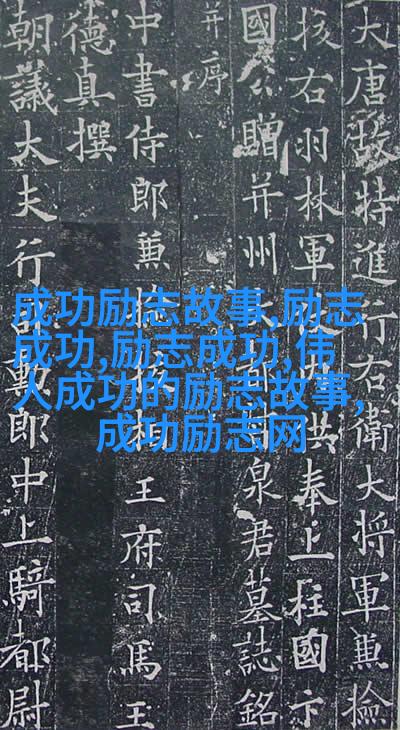 大唐故特進行右衛大將軍兼撿
挍右羽林軍仗內供奉上柱國卞
國公贈并州大都督泉君墓誌銘
并序
中書侍郎兼撿挍相王府司馬王
德真撰
朝議大夫行司勳郎中上騎都尉
成功励志故事,励志
成功,励志成功,伟
人成功的励志故事,
成功励志网